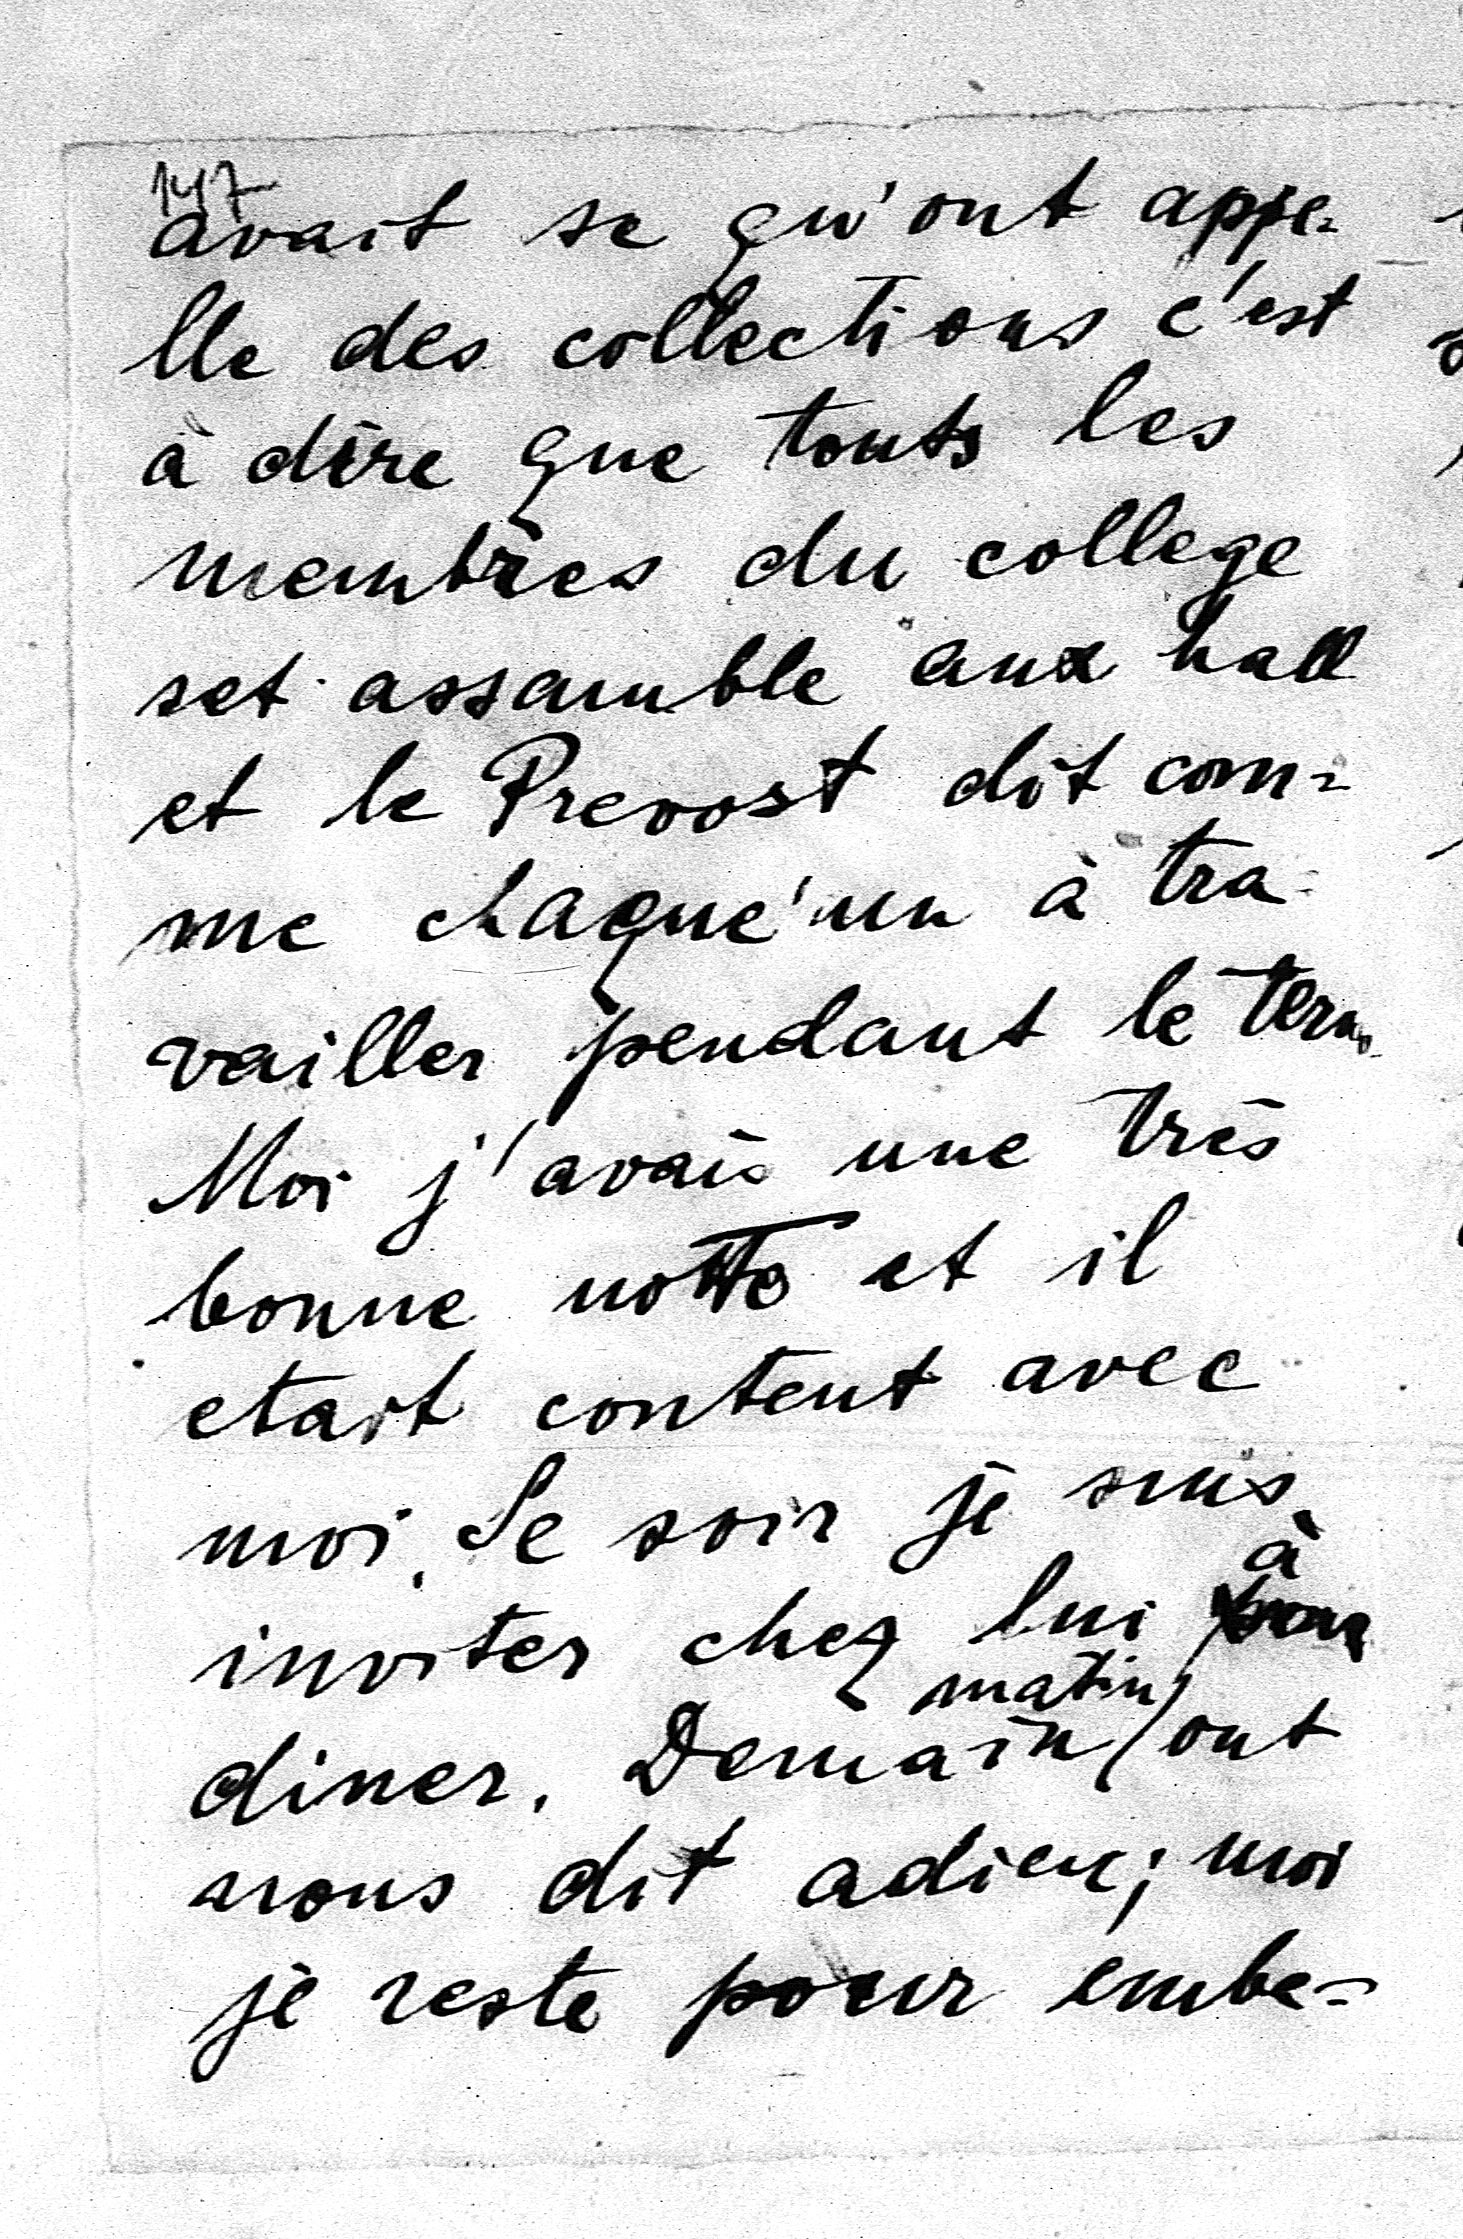 147
avait se qu'ont appe=
lle des collections c'est
à dire que touts les
membres du college
set assamble aux hall
et le Prevost dit com=
me chaque'un à tra=
vailler pendant le term.
Moi j'avais une très
bonne notte et il
etait content avec
moi. Le soir je suis
à
inviter chez lui pour
matin
diner. Demain ont
nous dit adieu; moi
je reste pour embe=